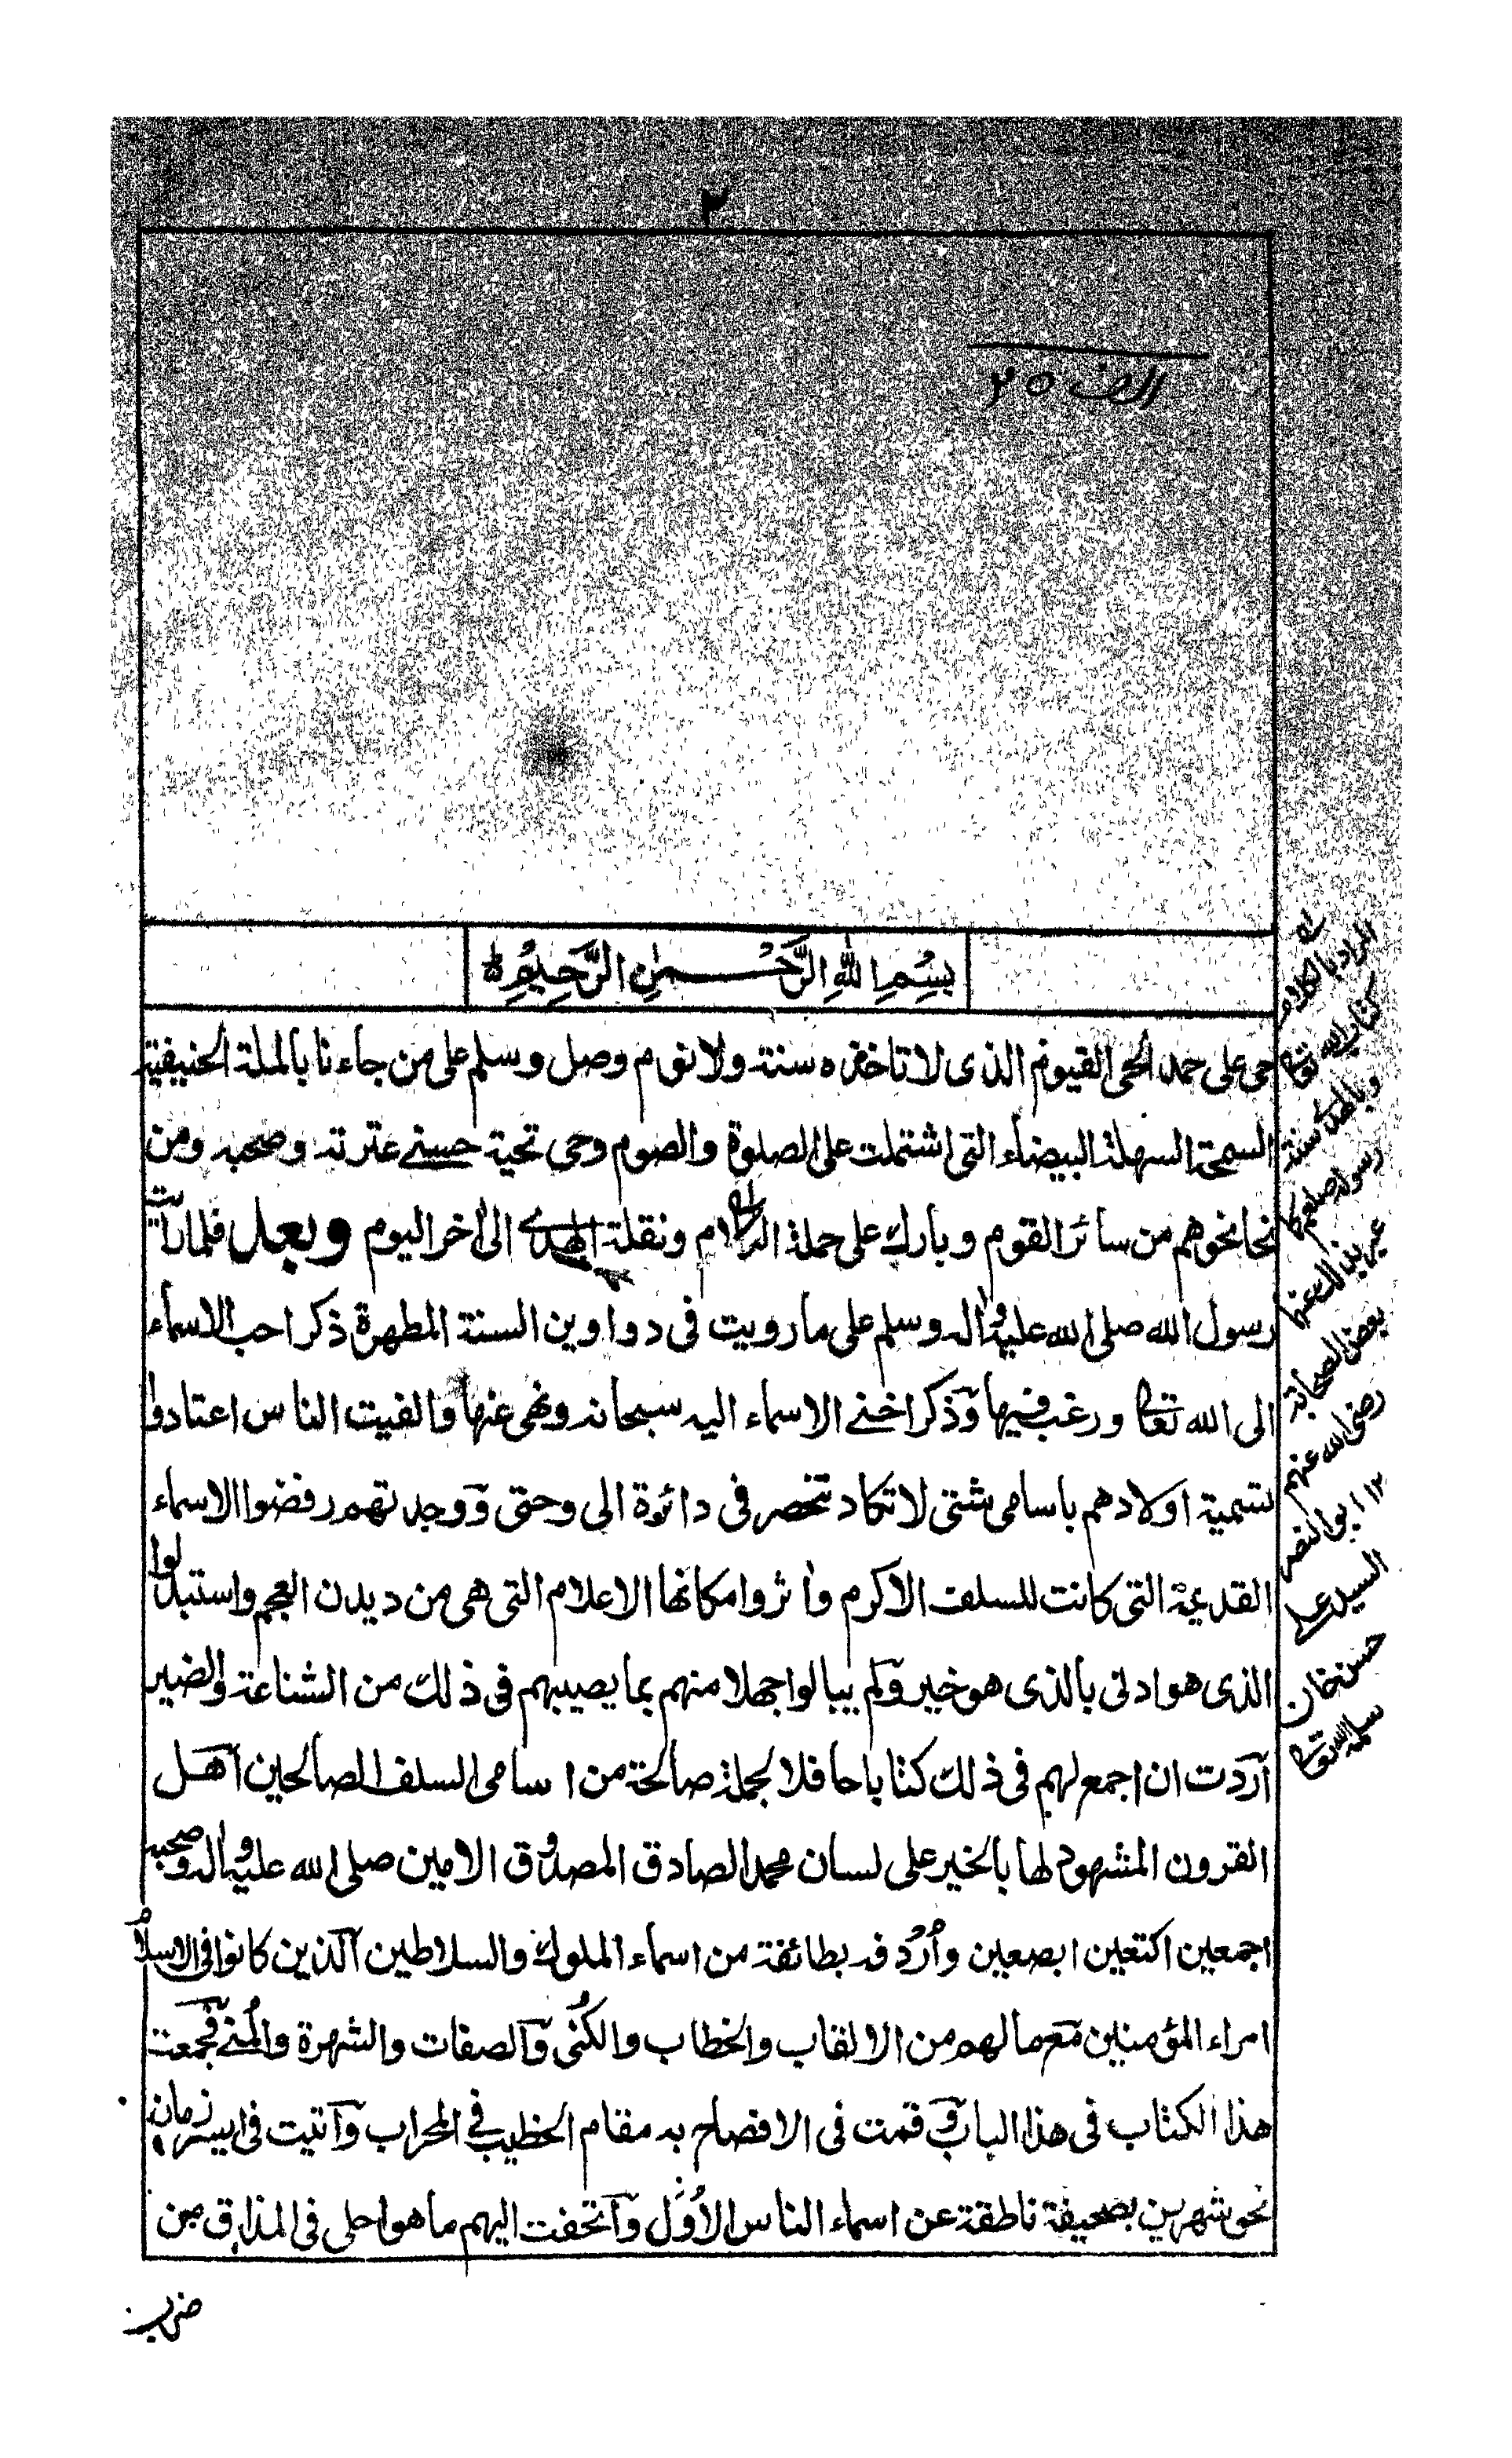 ٢
الف ٢٥
بِسْمِ اللهِ الرَّحْمٰنِ الرَّحِيْمِ
حى على حمد الحى القيوم الذى لا تاخذه سنة ولا نوم وصل وسلم على من جاءنا بالملة الحنيفية
السمحة السهلة البيضاء التى اشتملت على الصلوة والصوم وحى تحية حسنے عترته وصحبه ومن
نحا نحوهم من سائر القوم وبارك على حملة الكلام ونقلة الهدے الى اخر اليوم وبعد فلما رايت
رسول الله صلى الله عليه واله وسلم على ما رويت فى دواوين السنة المطهرة ذكر احب الاسماء
الى الله تعالى ورغب فيها وذكر اخنے الاسماء اليه سبحانه ونهى عنها والفيت الناس اعتادوا
تسمية اولادهم باسامى شتى لا تكاد تنحصر فى دائرة الى وحتى ووجدتهم رفضوا الاسماء
القديمة التى كانت للسلف الاكرم واثروا مكانها الاعلام التى هى من ديدن العجم واستبدلوا
الذى هو ادنى بالذى هو خير ولم يبالوا جهلا منهم بما يصيبهم فى ذلك من الشناعة والضير
اردت ان اجمع لهم فى ذلك كتابا حافلا لجملة صالحة من اسامى السلف الصالحين اهل
القرون المشهود لها بالخير على لسان محمد الصادق المصدوق الامين صلى الله عليه واله وصحبه
اجمعين اكتعين ابصعين واُرْدفه بطائفة من اسماء الملوك والسلاطين الذين كانوا فى الاسلام
امراء المؤمنين مع ما لهم من الالقاب والخطاب والكُنى والصفات والشهرة والمُنے فجمعت
هذا الكتاب فى هذا الباب وقمت فى الافصاح به مقام الخطيب فے المحراب واتيت فى ايسر زمان
نحو شهرين بصحيفة ناطقة عن اسماء الناس الاُوَل واتحفت اليهم ما هو احلى فى المذاق من
ضرب
المراد بالكلام
كتاب الله تعالى
وبالهدى سنة
رسوله صلعم كما
عبر بذلك عنهما
بعض الصحابة
رضى الله عنهم
١٢ ابو النصر
السيد على
حسن خان
سلمه الله تعالى